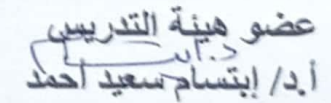 عضو هيئة التدريس
أ.د/ إبتسام سعيد أحمد